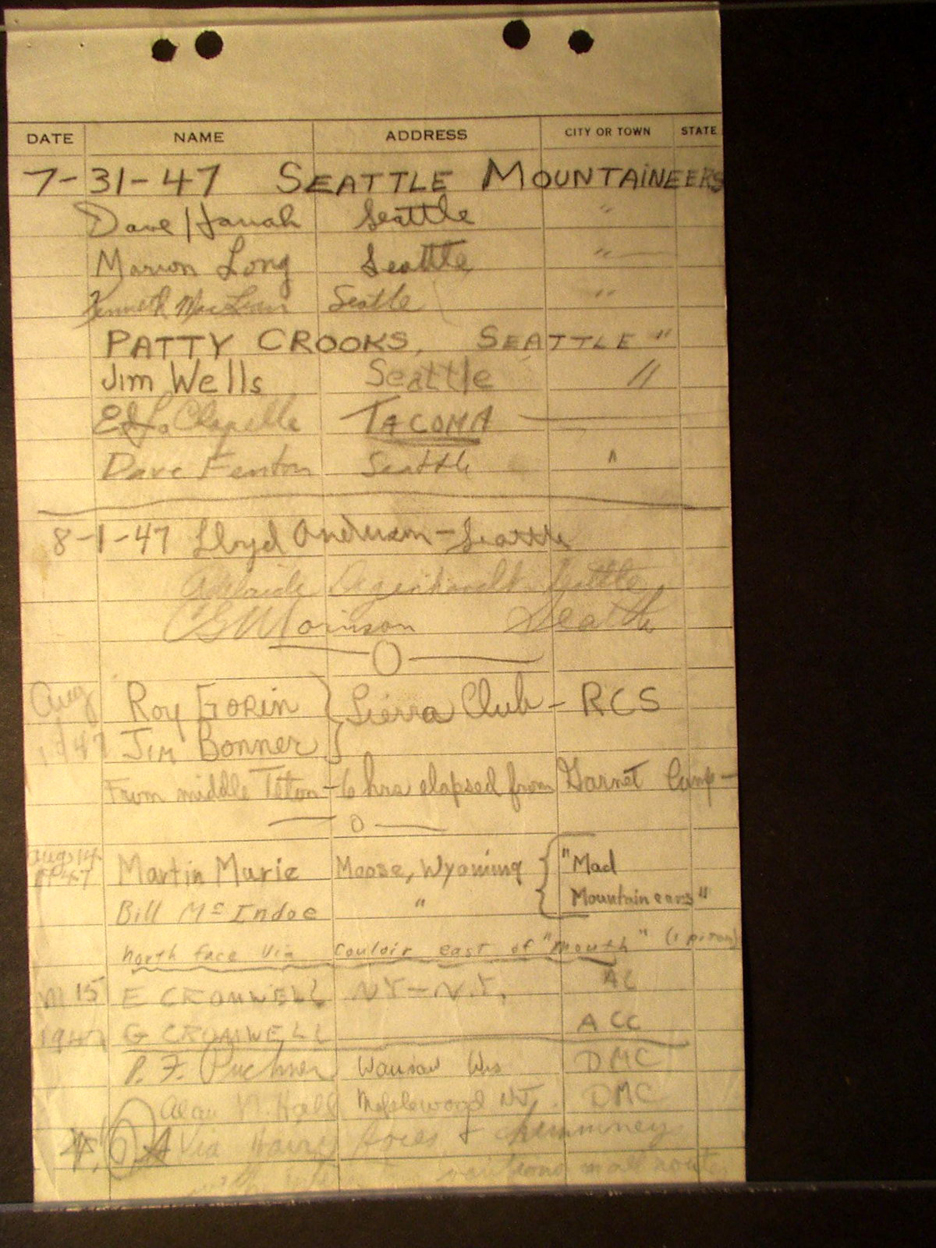 DATE NAME ADDRESS CITY OR TOWN STATE
7-31-47 SEATTLE MOUNTAINEERS
Dave Harrah Seattle "
Marion Long Seattle "
Kenneth MacLean Seattle "
PATTY CROOKS, SEATTLE "
Jim Wells Seattle "
Ed LaChapelle TACOMA
Dave Fenton Seattle "
8-1-47 Lloyd Anderson - Seattle
Adelaide Seattle
Morrison Seattle
Aug Roy GORIN } Sierra Club - RCS
47 Jim BONNER
From middle Teton - 6 hrs elapsed from Garnet Camp -
Aug 14 Martin Murie Moose, Wyoming { "Mad
1947 Bill McIndoe " Mountaineers"
north face via Couloir east of "mouth" (1 piton)
15 E CROMWELL NY - N.Y. AC
1947 G CROMWELL ACC
P. F. Puchner Wausau Wis DMC
Alan N. Hall Maplewood NJ. DMC
Via faces & chimneys